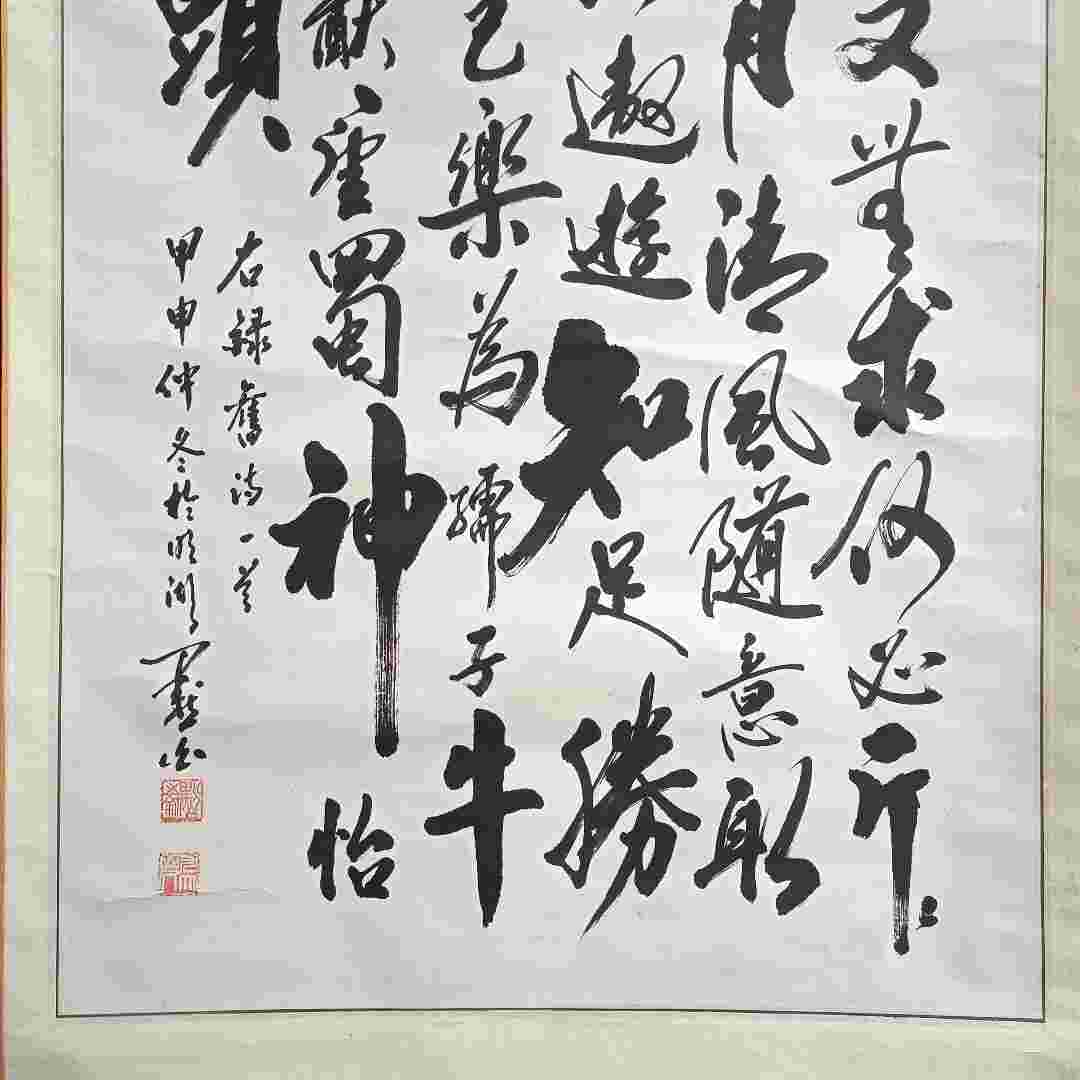 又無求何必斤〻
月清風隨意取
遨遊知足勝
樂為孺子牛
望蜀神怡
頭
右錄舊詩一首
甲申仲冬於明湖